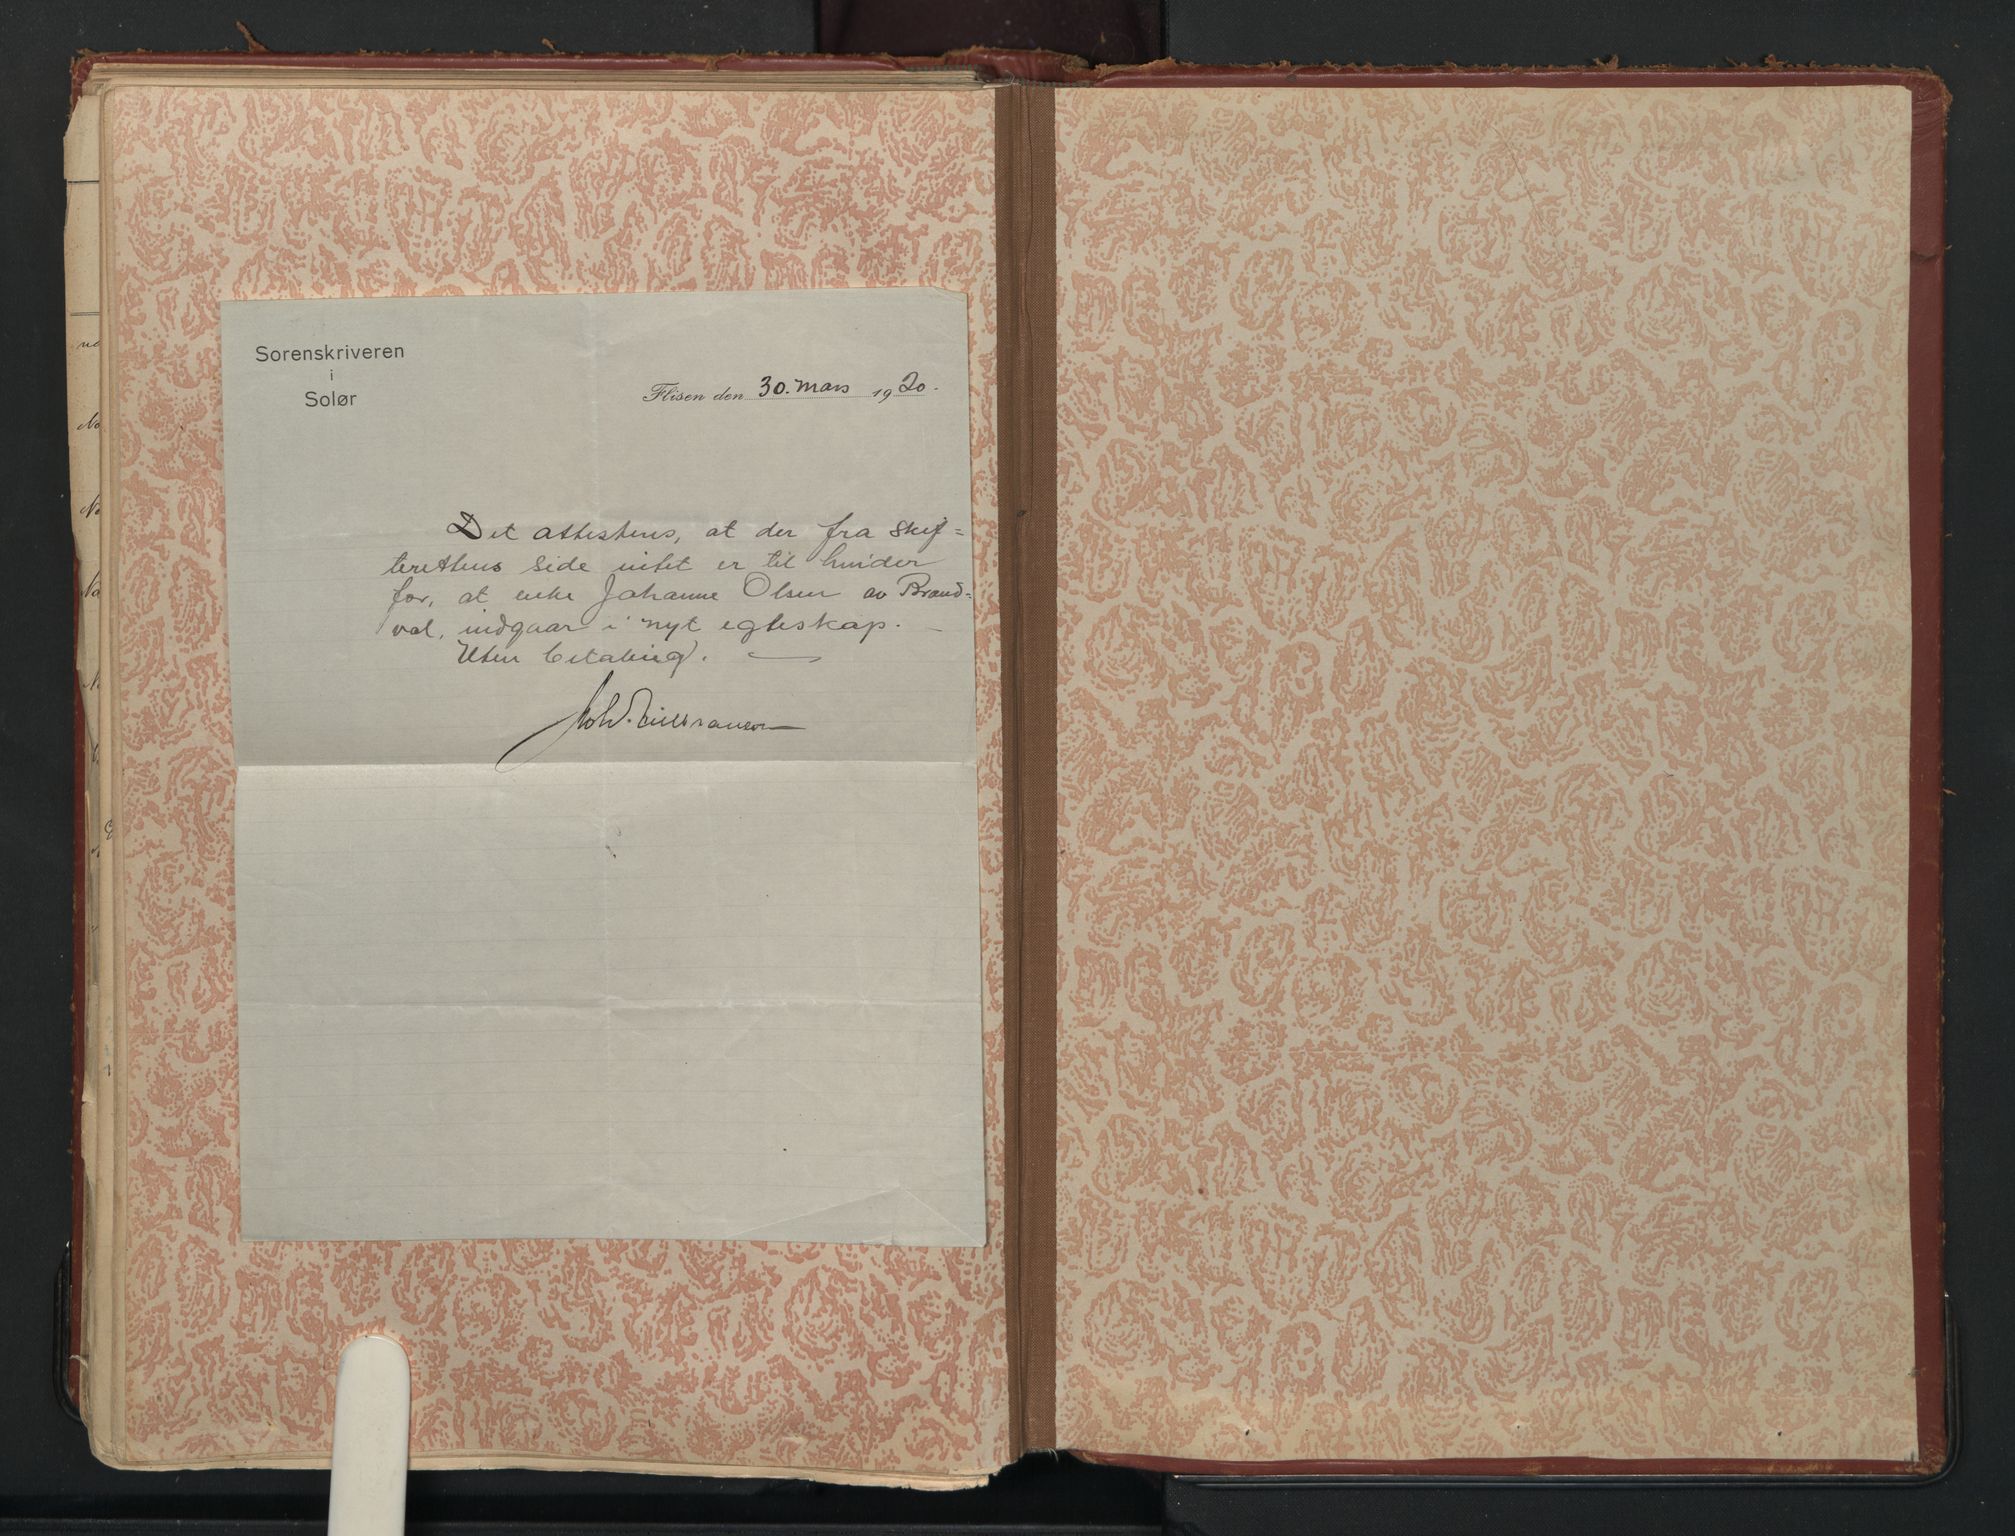 Sorenskriveren
i
Solør
Flisen den 30. mars 1920.
Det attesteres, at der fra skif=
terettens side intet er til hinder
for, at enke Johanne Olsen av Brand=
val, indgaar i nyt egteskap. —
Uten betaling. —